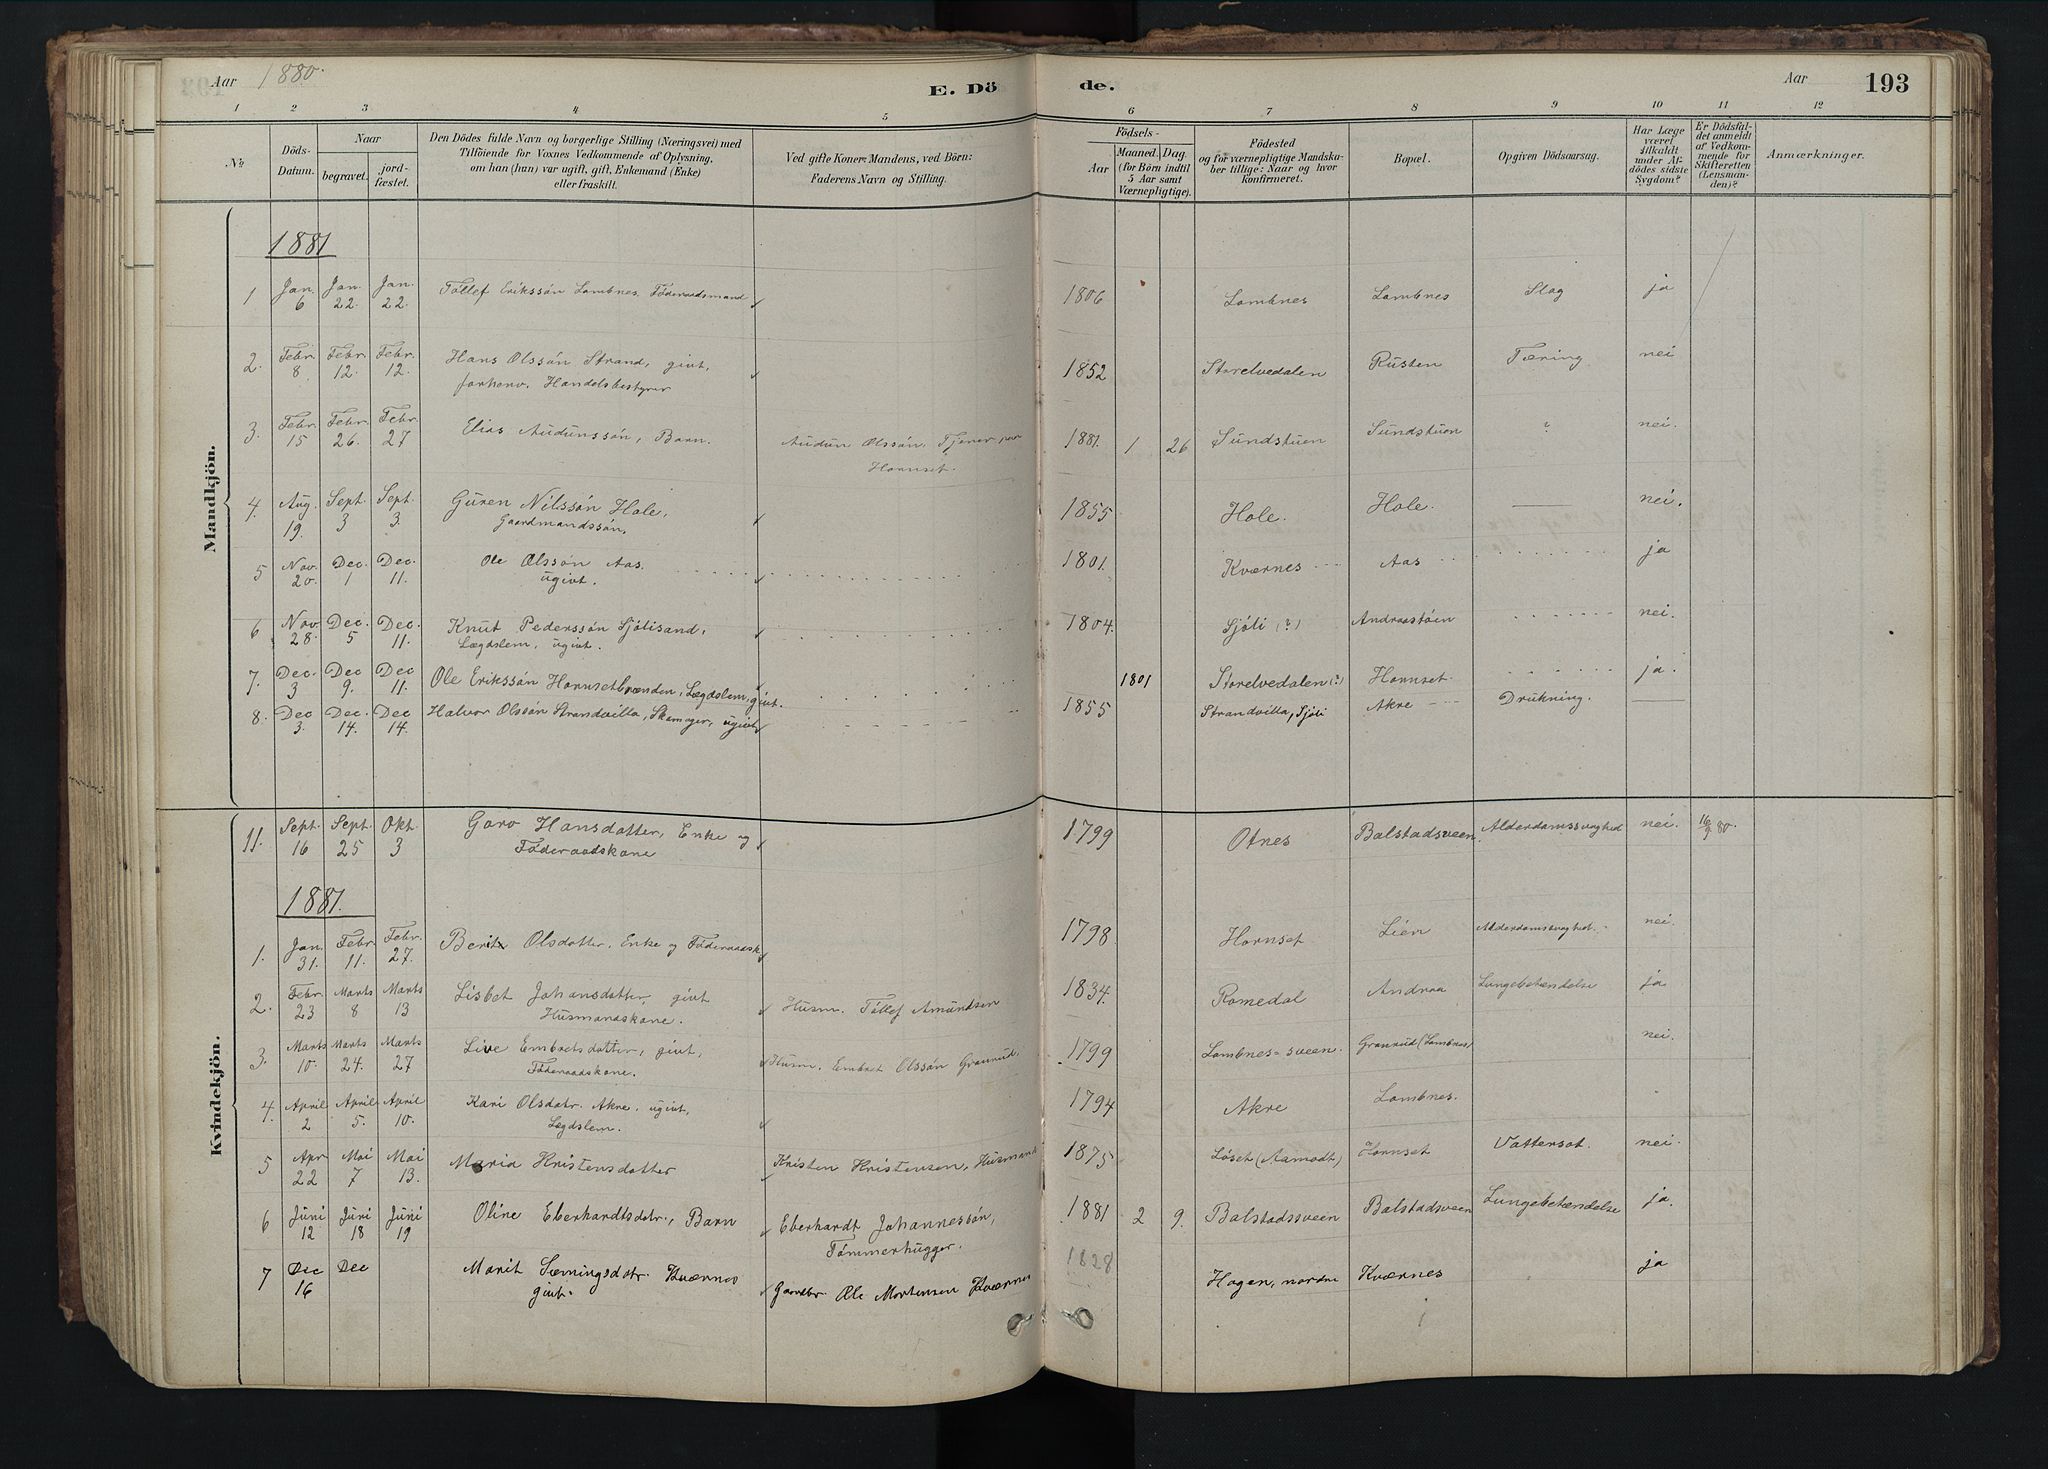 Aar 1880. E. Dö de. Aar 193
1 2 3 4 5 6 7 8 9 10 11 12
No
Döds-Datum.
Naar
begravet.
jord-fæstet.
Den Dödes fulde Navn og borgerlige Stilling (Næringsvei) med
Tilföiende for Voxnes Vedkommende af Oplysning,
om han (hun) var ugift, gift, Enkemand (Enke)
eller fraskilt.
Ved gifte Koner: Mandens, ved Börn:
Faderens Navn og Stilling.
Födsels-
Aar
Maaned. Dag.
(for Börn indtil
5 Aar samt
Værnepligtige).
Födested
og for værnepligtige Mandska-
ber tillige: Naar og hvor
Konfirmeret.
Bopæl.
Opgiven Dödsaarsag.
Har Læge
været
tilkaldt
under Af-
dödes sidste
Sygdom?
Er Dödsfal-
det anmeldt
af Vedkom-
mende for
Skifteretten
(Lensman-
den)?
Anmærkninger.
Mandkjön.
1881
1 Jan. 6 Jan. 22. Jan. 22. Tollef Erikssön Lombnes. Föderaadsmand 1806 Lombnes Lombnes Slag ja
2. Febr. 8 Febr. 12. Febr. 12. Hans Olssön Strand, givt,
forhenv. Handelsbestyrer 1852 Storelvedalen Rusten Tæring nei
3. Febr. 15 Febr. 26. Febr 27 Elias Audunssön, Barn. Audun Olssön, Tjener paa
Hornset. 1881. 1 26 Sundstuen Sundstuen ? nei.
4. Aug. 19. Sept. 3 Sept. 3. Guren Nilssön Hole,
Gaardmandssön. 1855 Hole. Hole. nei.
5 Nov. 20. Dec. 1 Dec. 11. Ole Olssön Aas.
ugivt. 1801. Kværnes Aas ja
6 Nov. 28. Dec. 5 Dec. 11. Knut Pederssön Sjölisand,
Lægdslem, ugivt. 1804. Sjöli (?) Andraastöen nei.
7. Dec. 3 Dec 9. Dec 11. Ole Erikssön Hornsetbrænden, Lægdslem, givt. 1801 Storelvedalen (?) Hornset. ja.
8. Dec 3. Dec. 14. Dec 14. Halvor Olssön Strandvilla, Skomager, ugivt 1855 Strandvilla, Sjöli Akre Drukning.
Kvindekjön.
11. Sept. 16 Sept. 25 Okt. 3 Goro Hansdatter, Enke og
Föderaadskone 1799 Otnes Balstadsveen Alderdomssvaghed nei. 16/9 80.
1881.
1. Jan. 31. Febr. 11. Febr. 27. Berit Olsdatter, Enke og Föderaadsk. 1798 Hornset Lien Alderdomssvaghed. nei.
2. Febr. 23 Marts 8 Marts 13 Lisbet Johansdatter, givt
Husmandskone. Husm. Tollef Amundsen 1834. Romedal Andraa Lungebetændelse ja
3. Marts 10. Marts 24. Marts 27 Live Embretsdatter, givt,
Föderaadskone. Husm. Embret Olssön Granrud. 1799 Lombnes-sveen. Granrud (Lombnes) nei.
4. April 2 April 5. April 10. Kari Olsdatr. Akre, ugivt,
Lægdslem. 1794 Akre Lombnes.
5 Apr 22 Mai 7 Mai 13. Maria Kristensdatter Kristen Kristensen, Husmand 1875 Löset (Aamodt) Hornset Vattersot. nei.
6 Juni 12 Juni 18 Juni 19 Oline Eberhardtsdatr., Barn Eberhardt Johannessön,
Tömmerhugger. 1881 2 9. Balstadssveen Balstadsveen Lungebetændelse ja.
7 Dec 16 Dec Marit Sæmingsdatr. Kværnes
givt. Gaardbr. Ole Mortensen Kværnes 1828 Hagen, nordre Kværnes ja